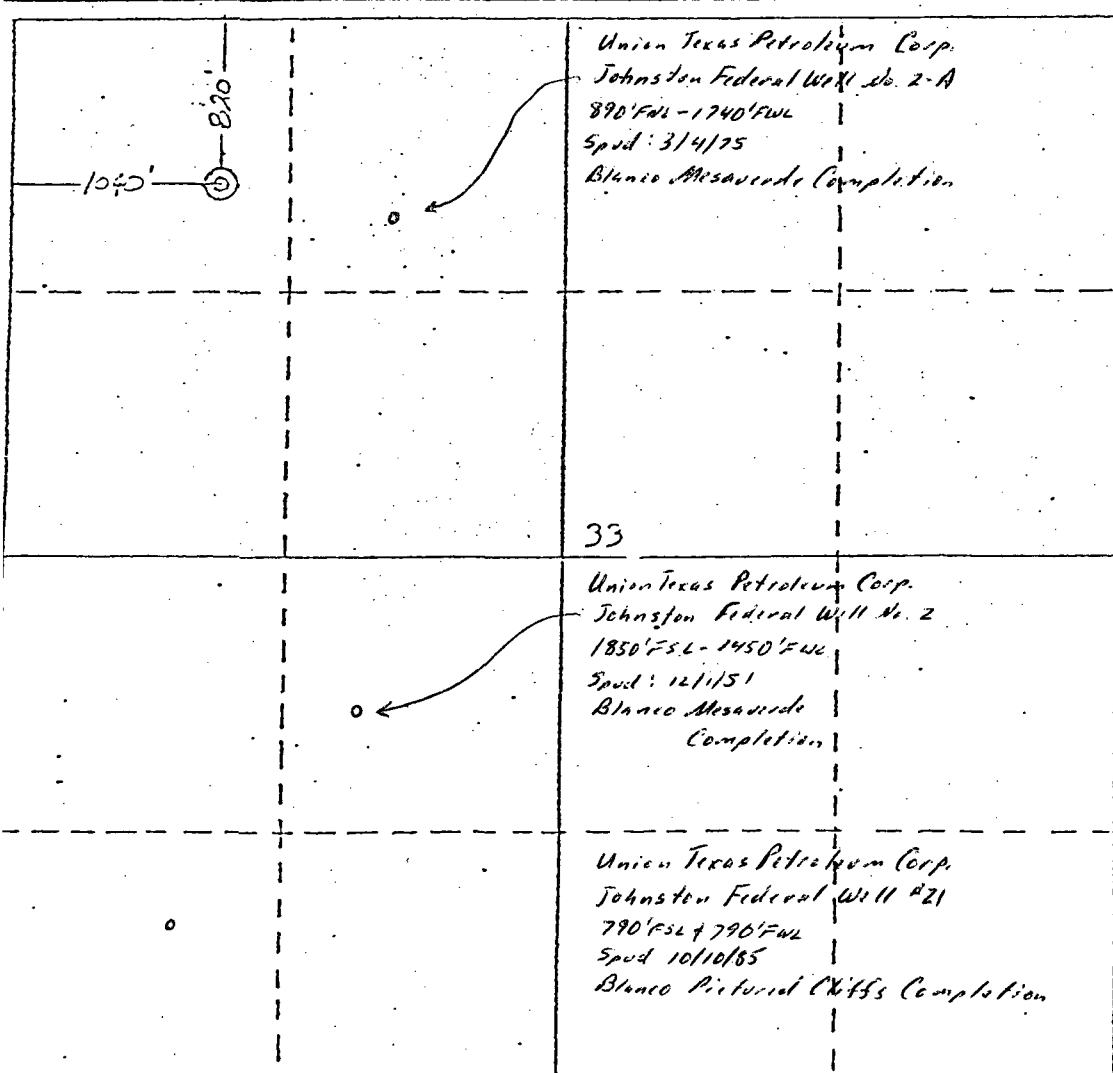 820'
1040'
Union Texas Petroleum Corp.
Johnston Federal Well No. 2-A
890'FNL-1740'FWL
Spud: 3/4/75
Blanco Mesaverde Completion
33
Union Texas Petroleum Corp.
Johnston Federal Well No. 2
1850'FSL-1450'FWL
Spud: 12/1/51
Blanco Mesaverde
Completion
Union Texas Petroleum Corp.
Johnston Federal Well #21
790'FSL & 790'FWL
Spud 10/10/85
Blanco Pictured Cliffs Completion